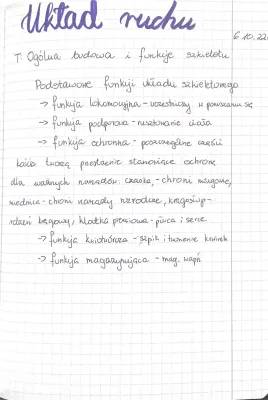 Układ ruchu
6.10.22
T: Ogólna budowa i funkcje szkieletu
Podstawowe funkcji układu szkieletowego
→ funkcja lokomocyjna - uczestniczy w poruszaniu się
→ funkcja podporowa - rusztowanie ciała
→ funkcja ochronna - poszczególne części
kośća tworzą przestrzenie stanowiące ochronę
dla ważnych narządów: czaszka, - chroni mózgowie,
miednica - chroni narządy rozrodcze, kręgosłup -
rdzeń kręgowy, klatka piersiowa - płuca i serce
→ funkcja krwiotwórcza - szpik i tworzenie krwinek
→ funkcja magazynująca - mag. wapń